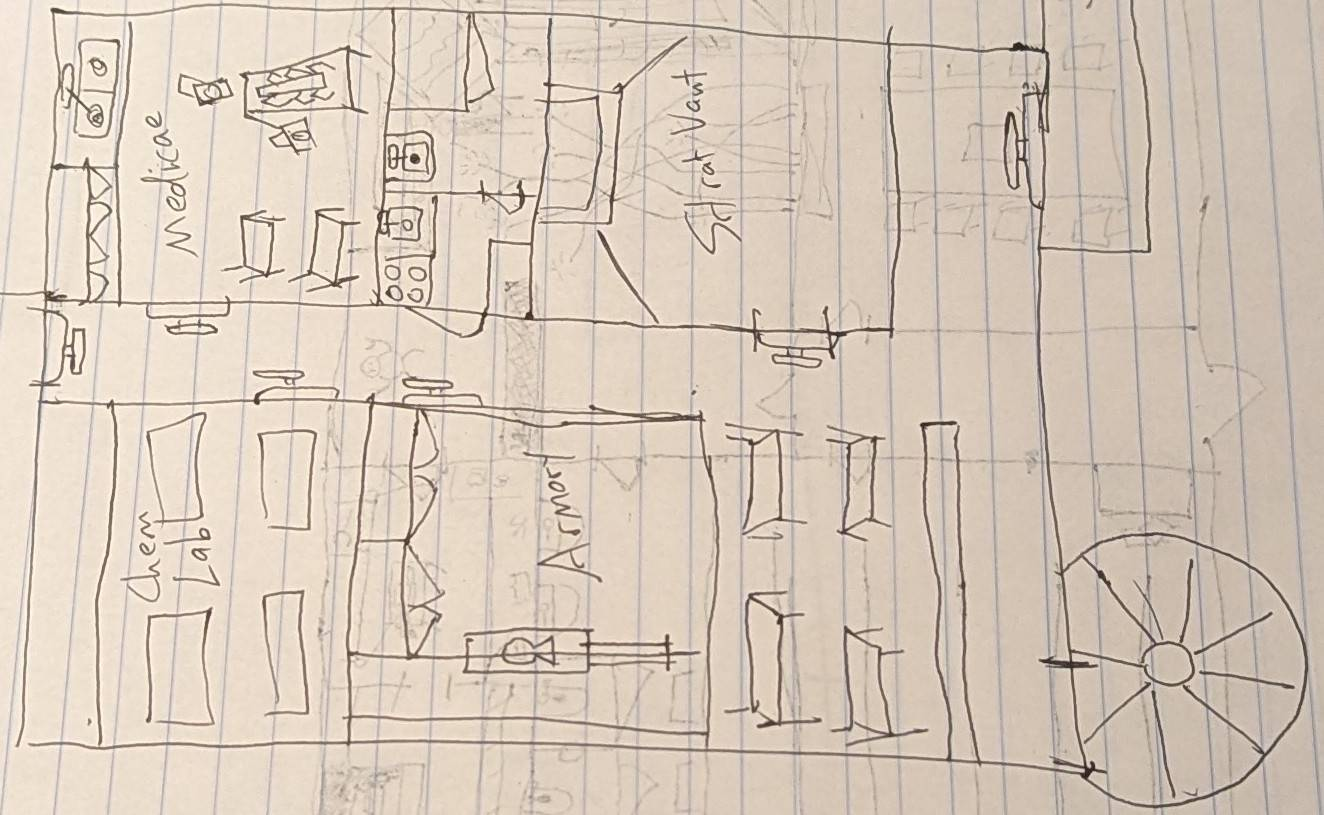 Medicae
Strat Vault
Chem
Lab
Armory